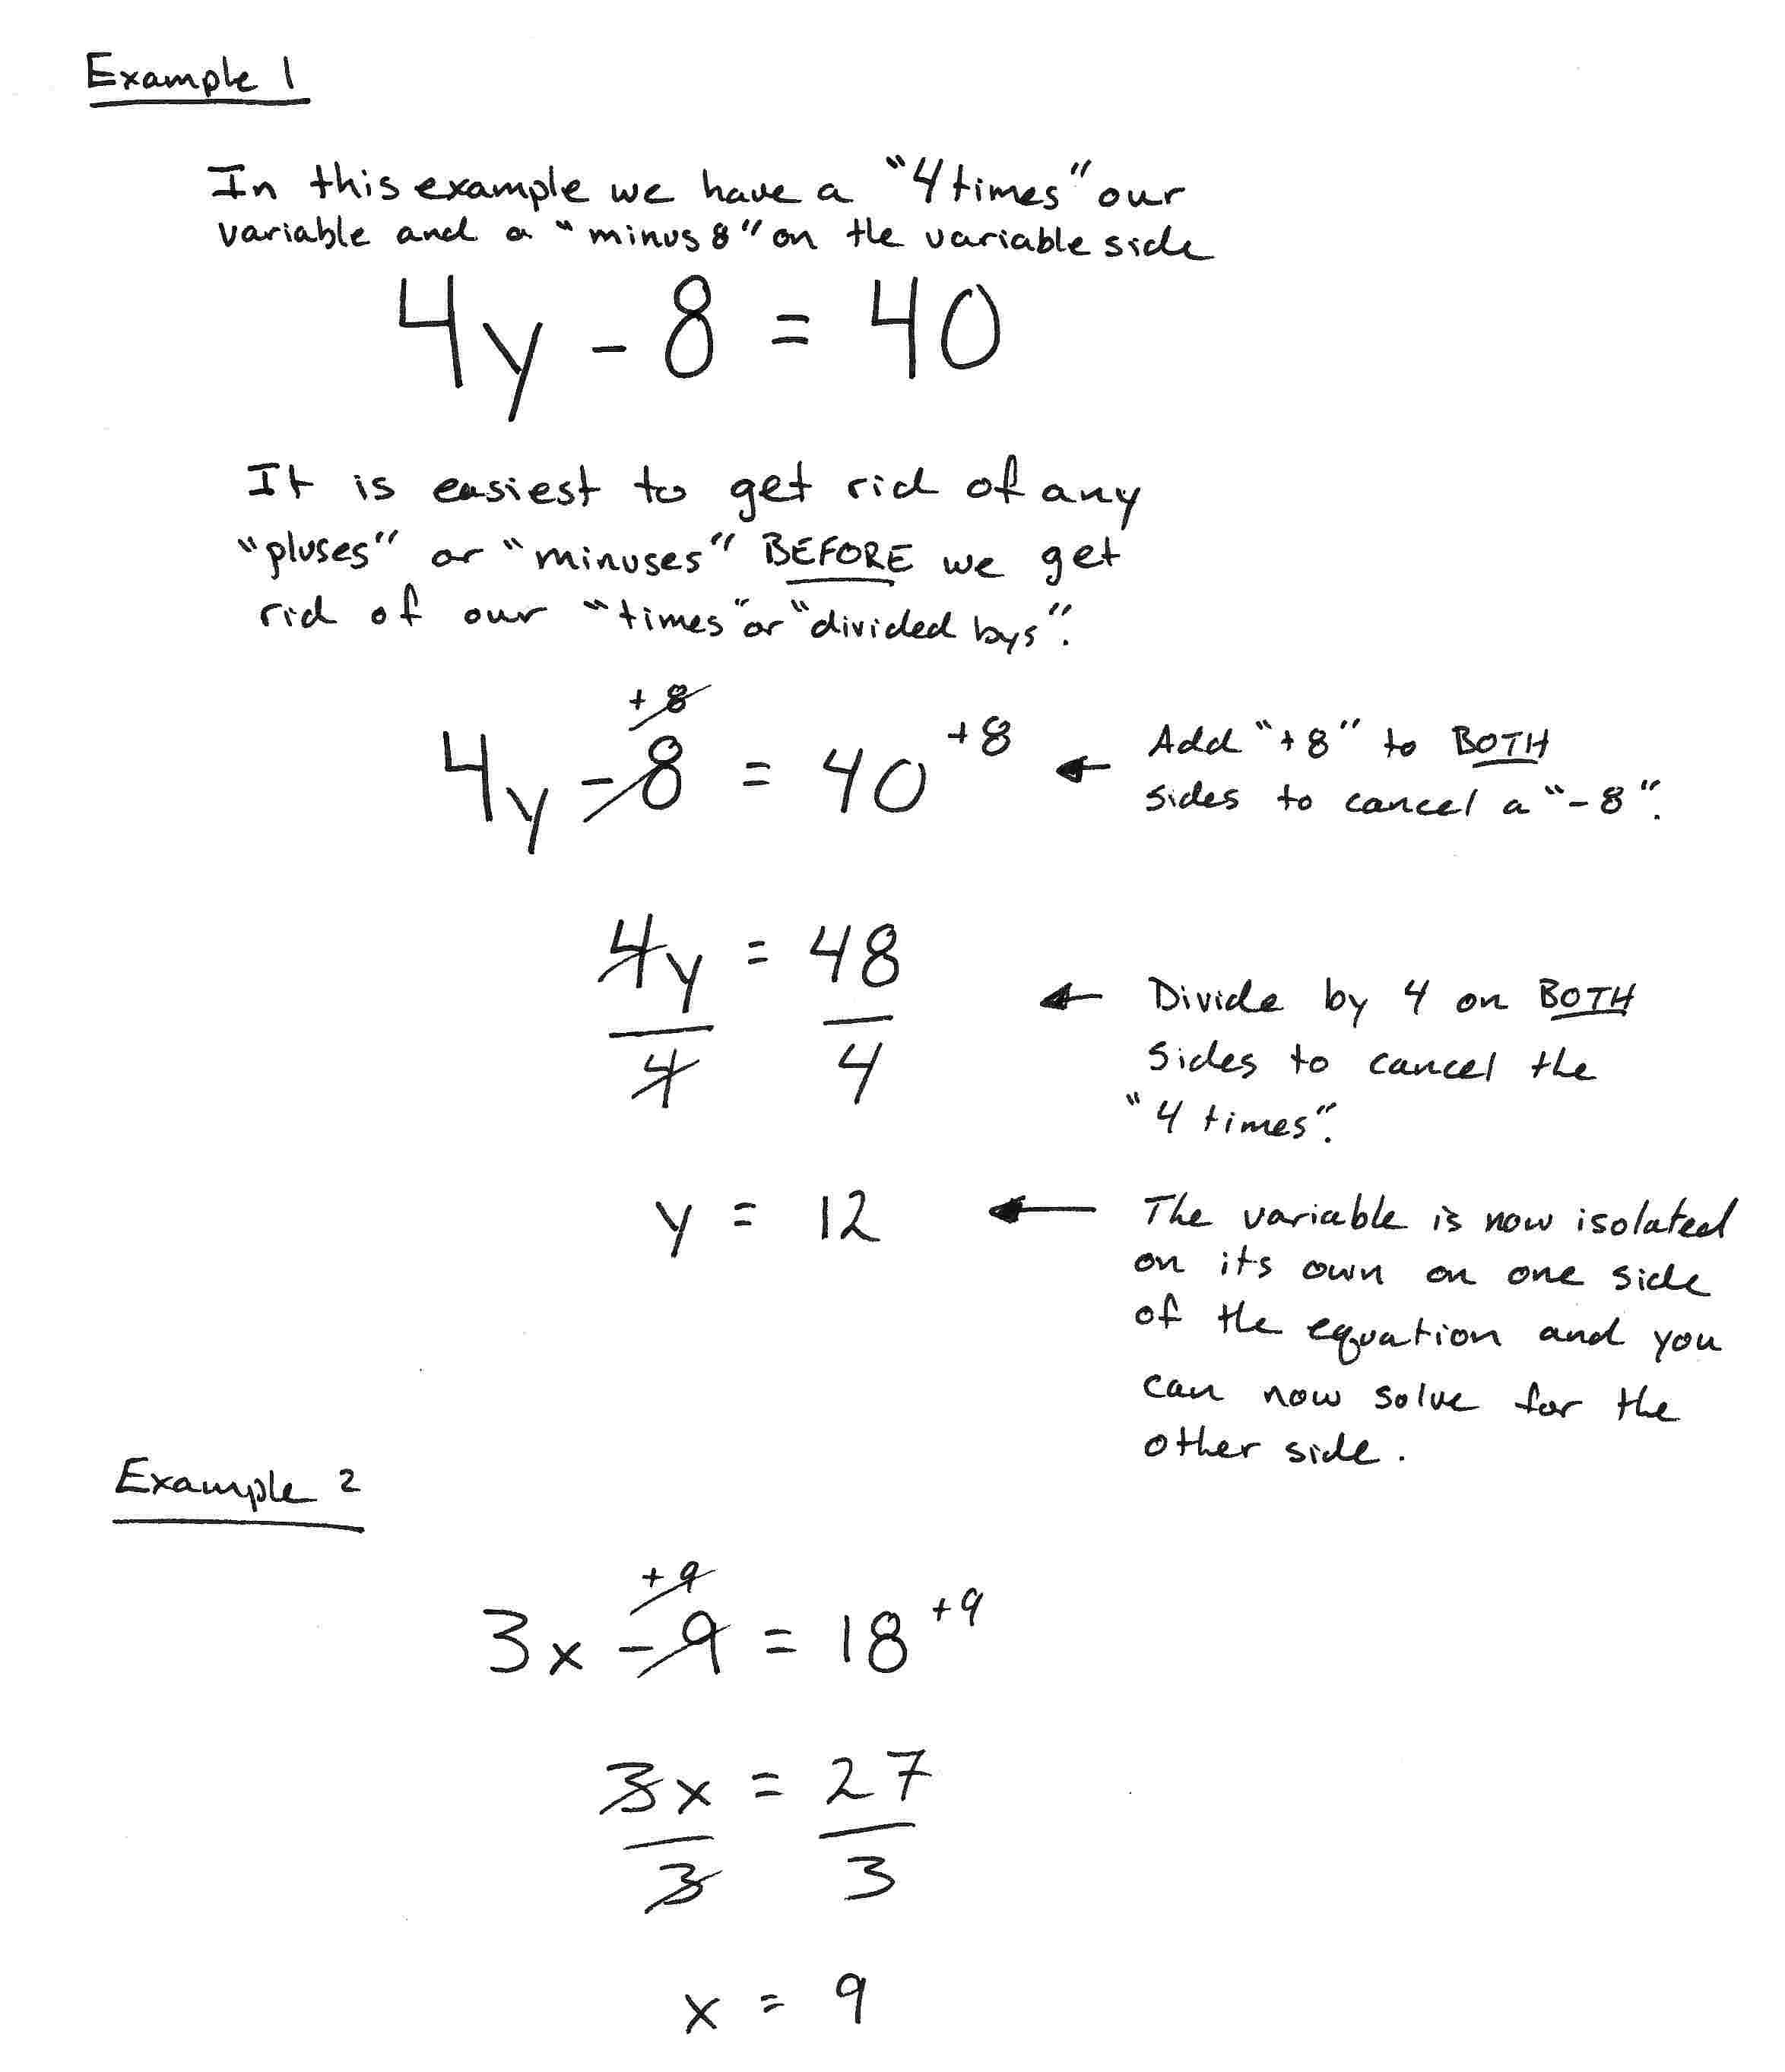 Example 1
In this example we have a "4 times" our
variable and a "minus 8" on the variable side
4y - 8 = 40
It is easiest to get rid of any
"pluses" or "minuses" BEFORE we get
rid of our "times" or "divided bys".
+8
4y - 8 = 40 +8 ← Add "+8" to BOTH
sides to cancel a "-8".
4y = 48
4 4
← Divide by 4 on BOTH
sides to cancel the
"4 times".
y = 12 ← The variable is now isolated
on its own on one side
of the equation and you
can now solve for the
other side.
Example 2
+9
3x - 9 = 18 +9
3x = 27
3 3
x = 9